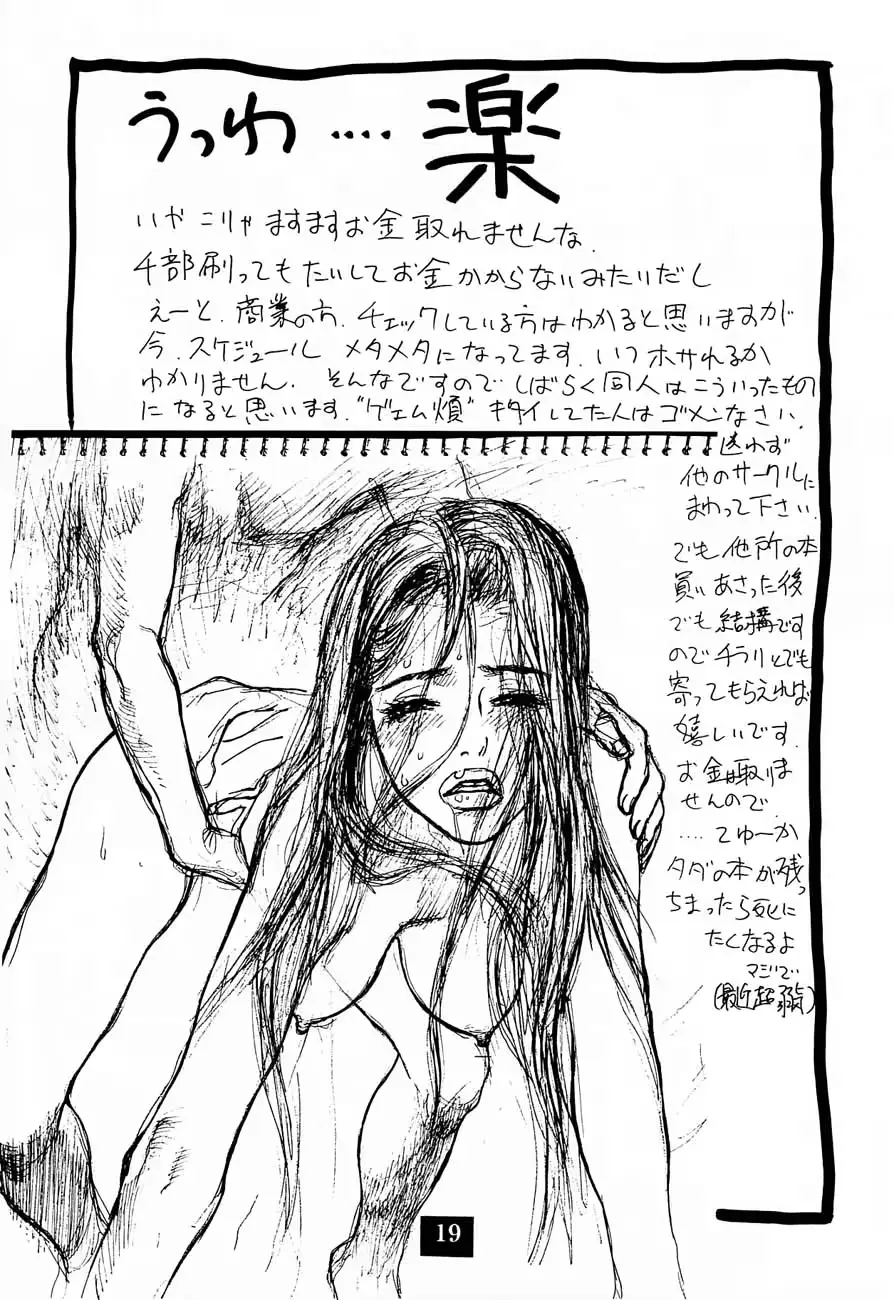 うっわ‥‥楽
いや こりゃ ますますお金取れませんな.
千部刷っても たいしてお金かからないみたいだし
えーと. 商業の方. チェックしている方はわかると思いますが
今. スケジュール メタメタになってます. いつホサれるか
わかりません. そんなですので しばらく同人はこういったもの
になると思います. “ゲェム煩” キタイしてた人はゴメンなさい.
迷わず
他のサークルに
まわって下さい.
でも 他所の本
買いあさった後
でも 結構です
ので チラリとでも
寄ってもらえれば
嬉しいです.
お金は取りま
せんので.
‥‥ てゆーか
タダの本が残っ
ちまったら死に
たくなるよ
マジで
(最近超弱)
19